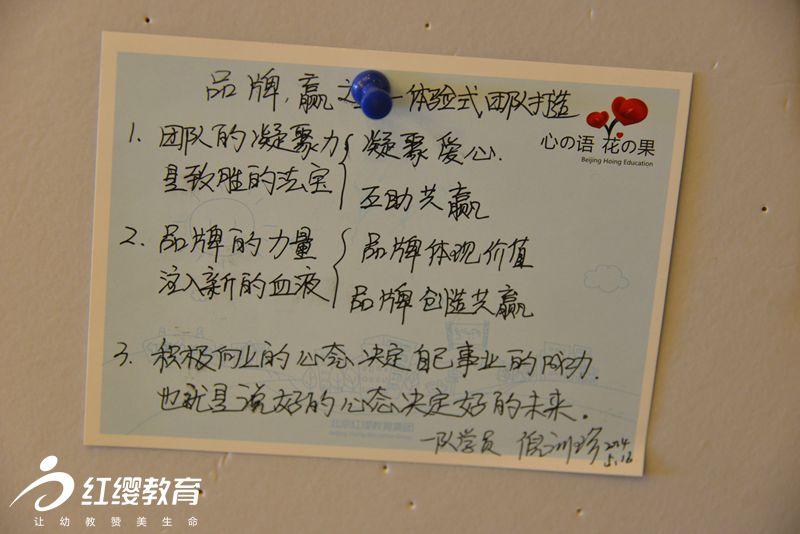 品牌,赢之一体验式团队打造
心の语 花の果
Beijing Hoing Education
1. 团队的凝聚力 是致胜的法宝 { 凝聚爱心. 互助共赢
2. 品牌的力量 注入新的血液 { 品牌体现价值 品牌创造共赢
3. 积极向上的心态决定自己事业的成功.
也就是说好的心态决定好的未来。
北京红缨教育集团
一队学员 2014
5.12
红缨教育
让幼教赞美生命